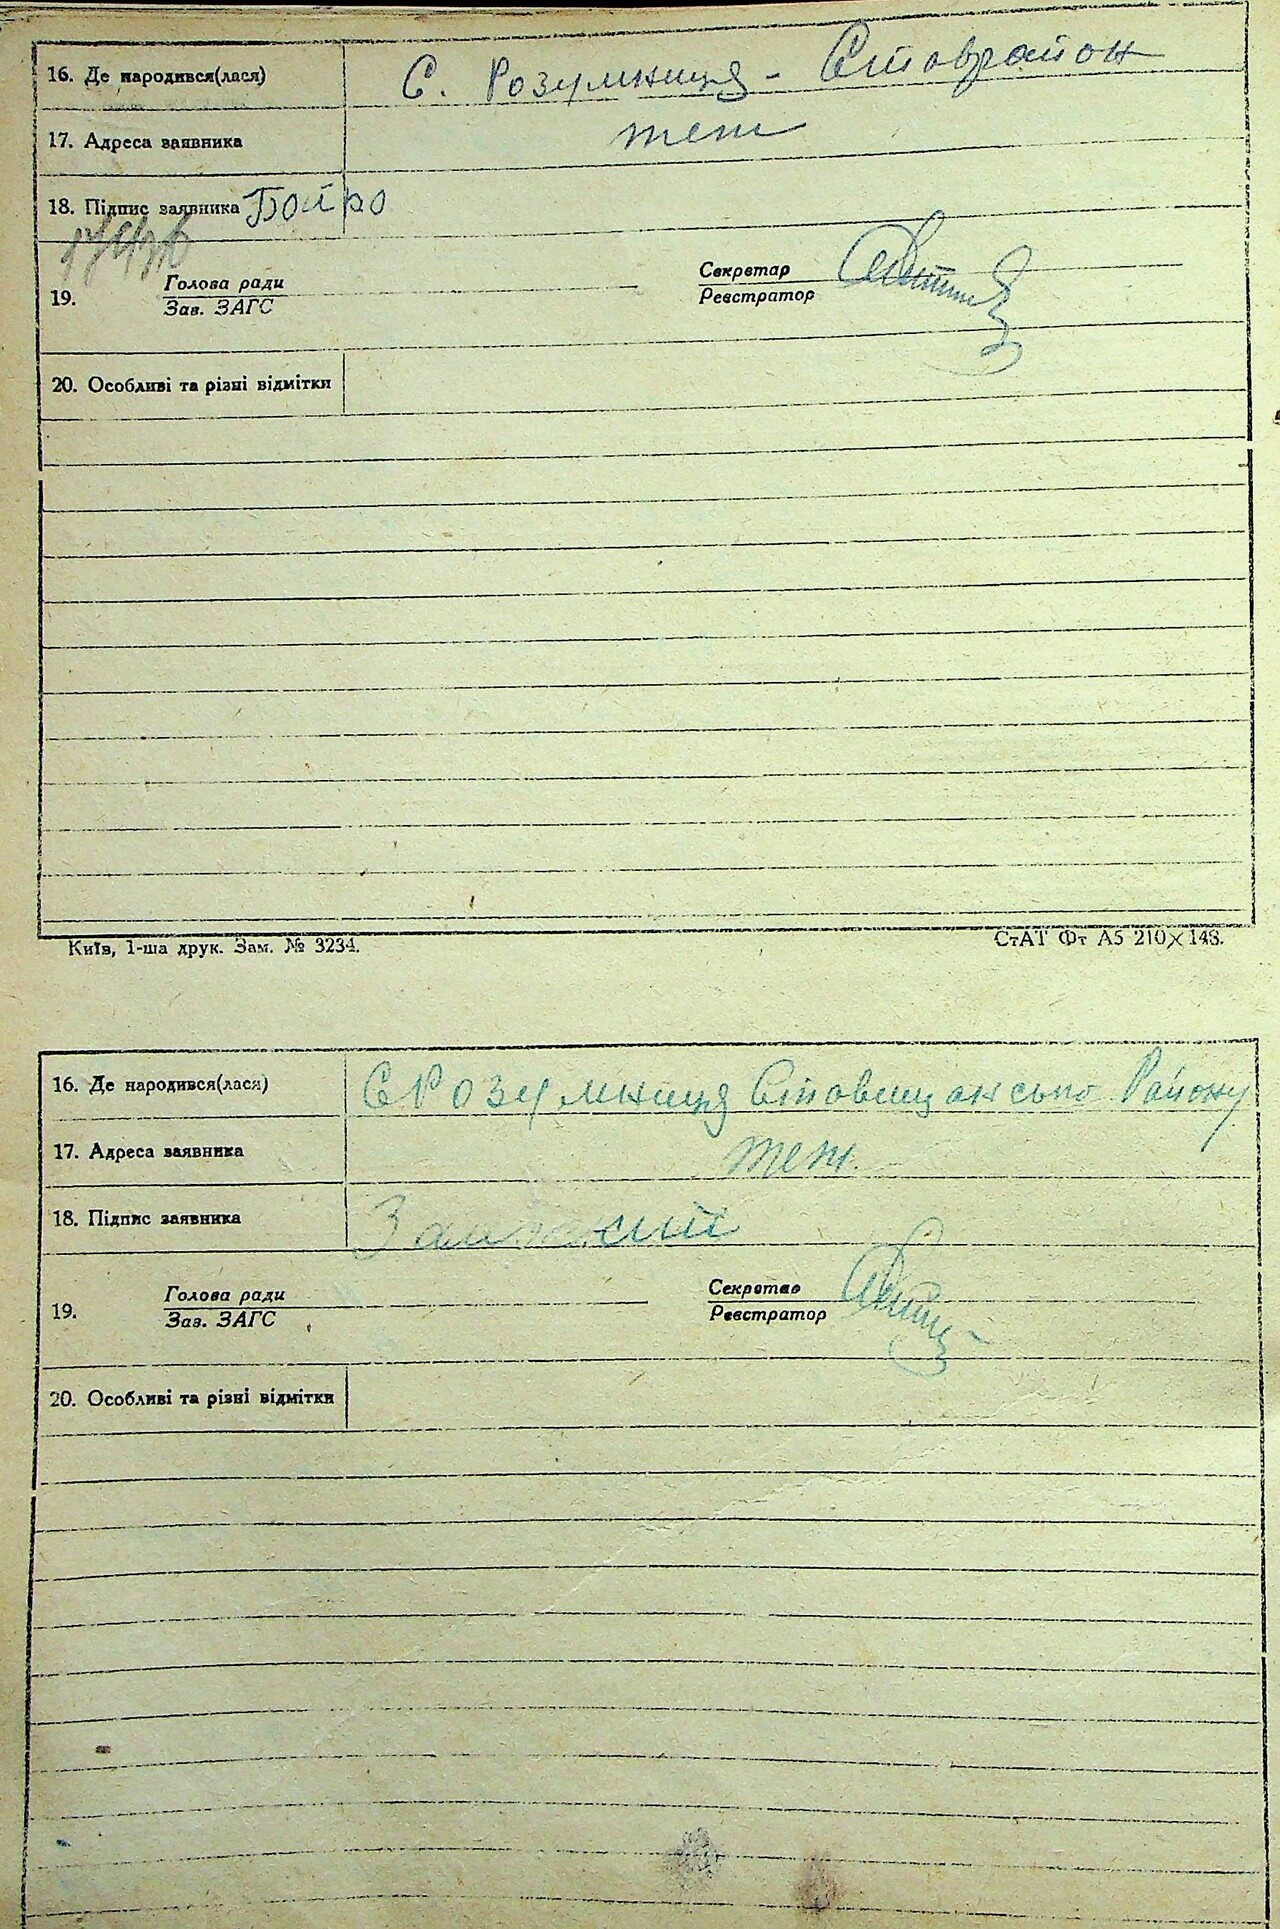 16. Де народився(лася) С. Розумниця - Ставрайон
17. Адреса заявника теж
18. Підпис заявника Бойко
19. Голова ради Секретар
Зав. ЗАГС Реєстратор
20. Особливі та різні відмітки
Київ, 1-ша друк. Зам. № 3234. СтАТ Фт А5 210×148.
16. Де народився(лася) С Розумниця Ставищансько Району
17. Адреса заявника теж.
18. Підпис заявника
19. Голова ради Секретар
Зав. ЗАГС Реєстратор
20. Особливі та різні відмітки